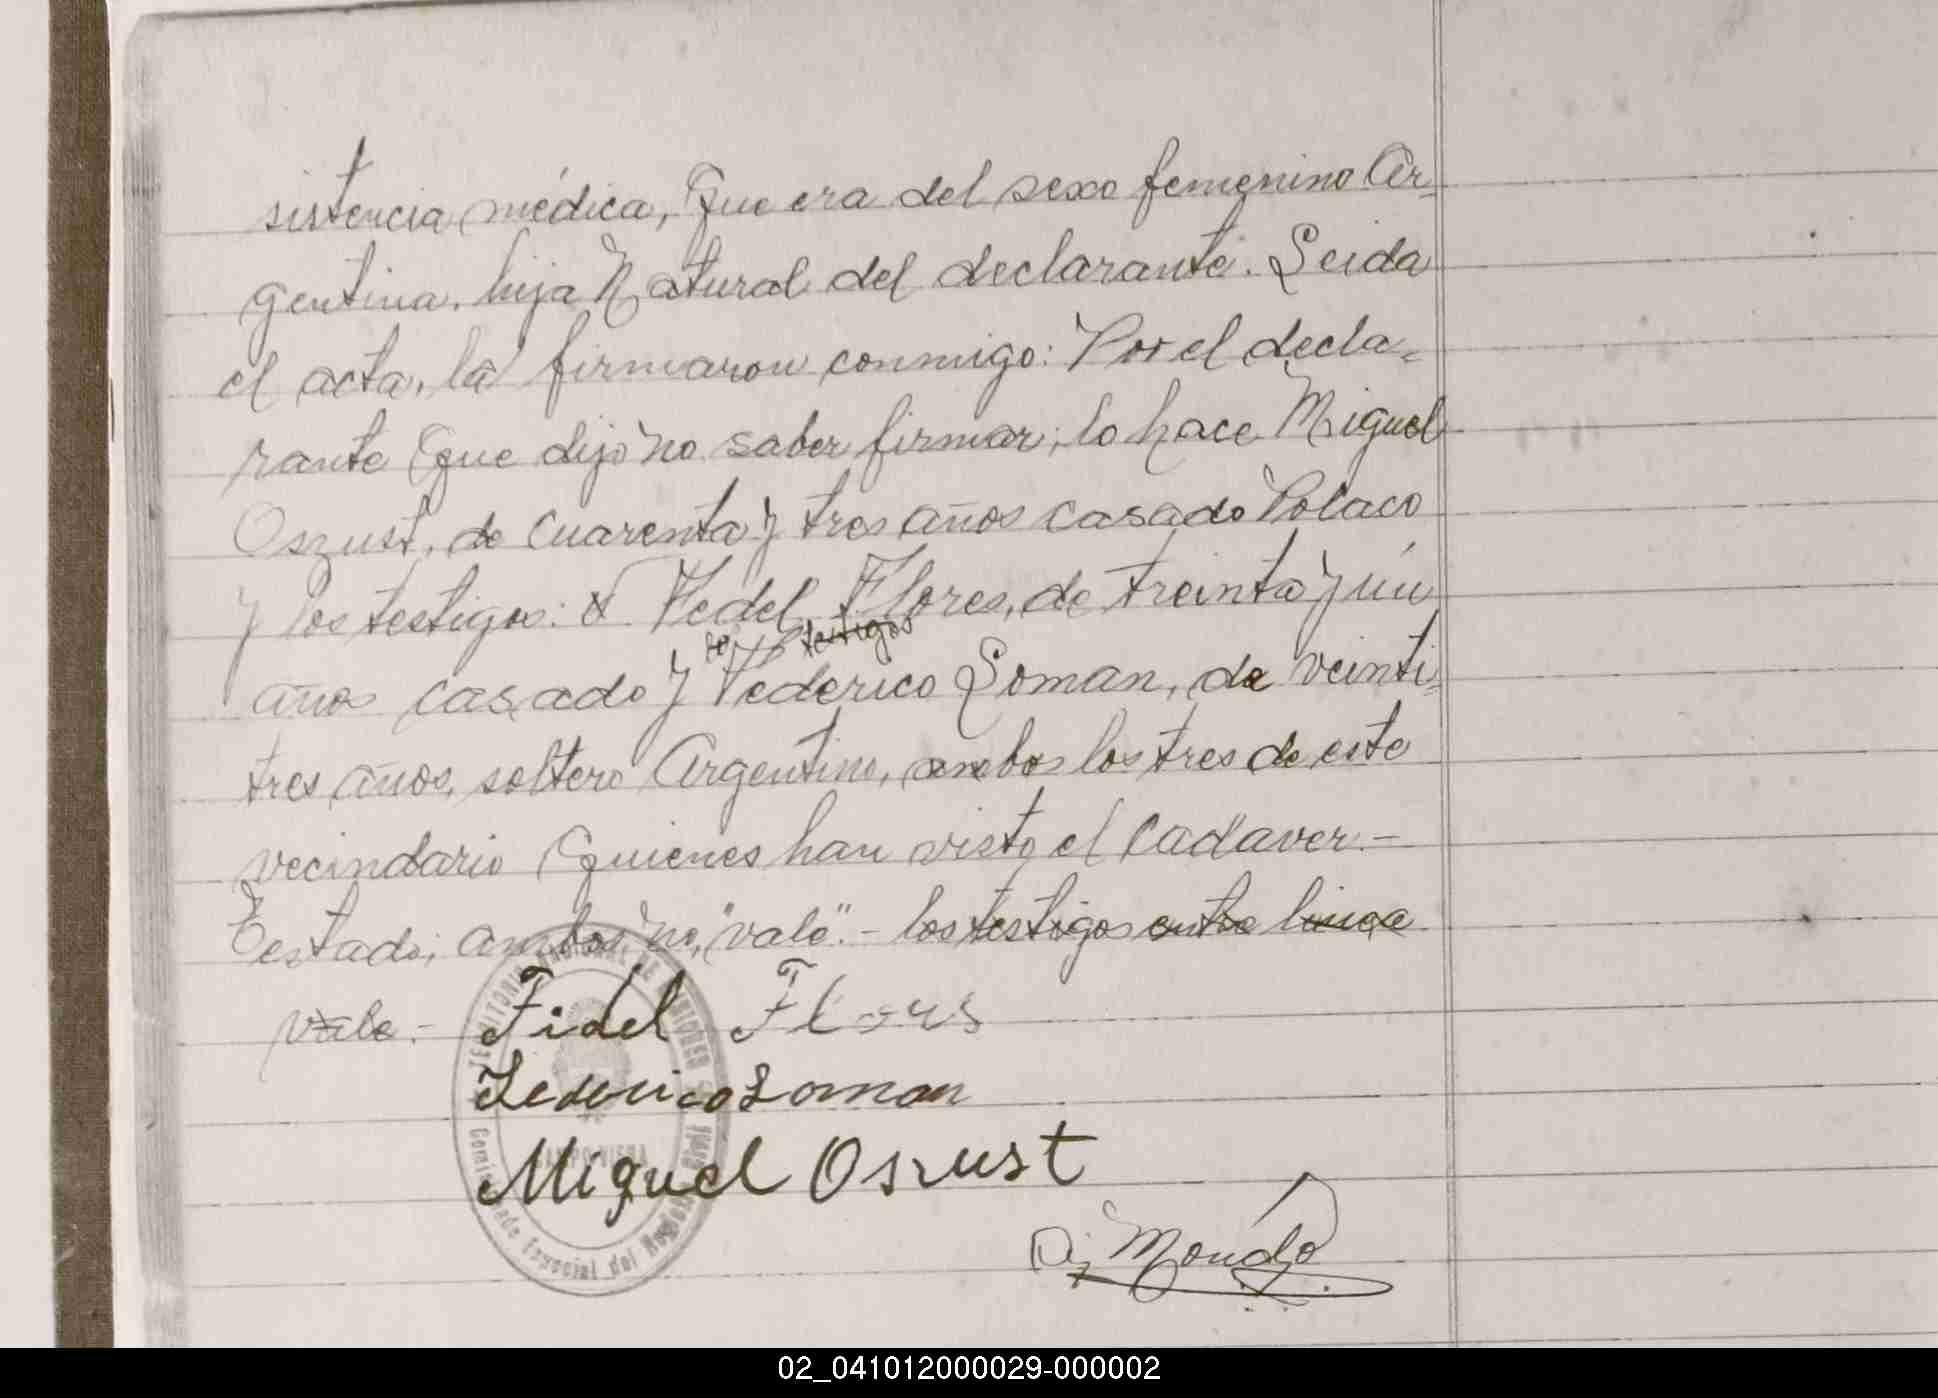 sistencia médica, Que era del sexo femenino Ar-
gentina. hija Natural del declarante. Leida
el acta, la firmaron conmigo: Por el decla-
rante Que dijo no saber firmar, lo hace Miguel
Oszust, de cuarenta y tres años casado Polaco
y los testigos: Fedel Flores, de treinta y un
los testigos
años casado y Federico Loman, de veinti-
tres años, soltero Argentino, ambos los tres de este
vecindario Quienes han visto el cadaver.-
Testado; ambos no, "vale".- los testigos entre linea
vale.-
Fidel Flors
Federico Loman
Miguel Oszust
Mondo
TERRITORIO NACIONAL DE MISIONES
CAMPO VIERA
Comisionado Especial del Registro Civil
02_041012000029-000002